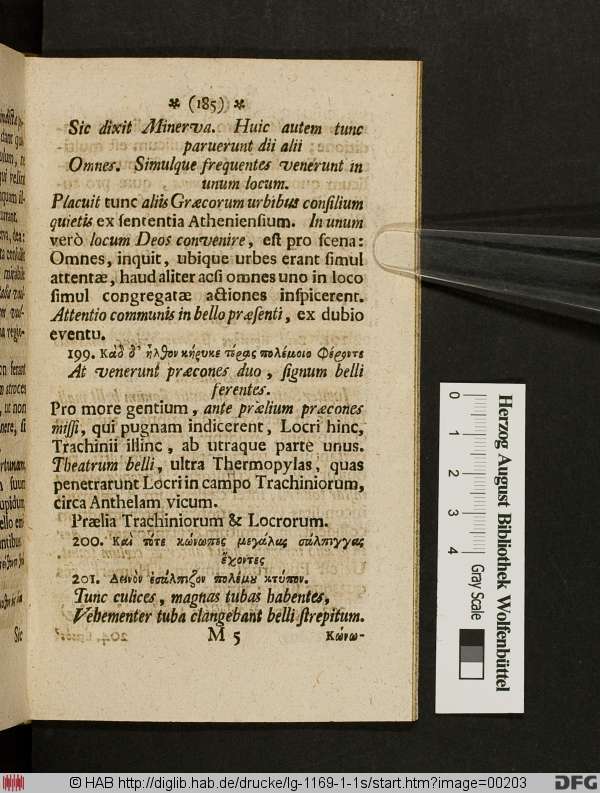 * (185) *
Sic dixit Minerva. Huic autem tunc
paruerunt dii alii
Omnes. Simulque frequentes venerunt in
unum locum.
Placuit tunc aliis Græcorum urbibus consilium
quietis ex sententia Atheniensium. In unum
verò locum Deos convenire, est pro scena:
Omnes, inquit, ubique urbes erant simul
attentæ, haud aliter acsi omnes uno in loco
simul congregatæ actiones inspicerent.
Attentio communis in bello præsenti, ex dubio
eventu.
199. Κὰδ δ' ἦλθον κήρυκε τέρας πολέμοιο Φέροντε
At venerunt præcones duo, signum belli
ferentes.
Pro more gentium, ante prælium præcones
missi, qui pugnam indicerent, Locri hinc,
Trachinii illinc, ab utraque parte unus.
Theatrum belli, ultra Thermopylas, quas
penetrarunt Locri in campo Trachiniorum,
circa Anthelam vicum.
Prælia Trachiniorum & Locrorum.
200. Καὶ τότε κώνωπες μεγάλας σάλπιγγας
ἔχοντες
201. Δεινὸν ἐσάλπιζον πολέμου κτύπον.
Tunc culices, magnas tubas habentes,
Vehementer tuba clangebant belli strepitum.
M 5 Κώνω-
Sic
0
1
2
3
4
Herzog August Bibliothek Wolfenbüttel
Gray Scale
© HAB http://diglib.hab.de/drucke/lg-1169-1-1s/start.htm?image=00203
DFG